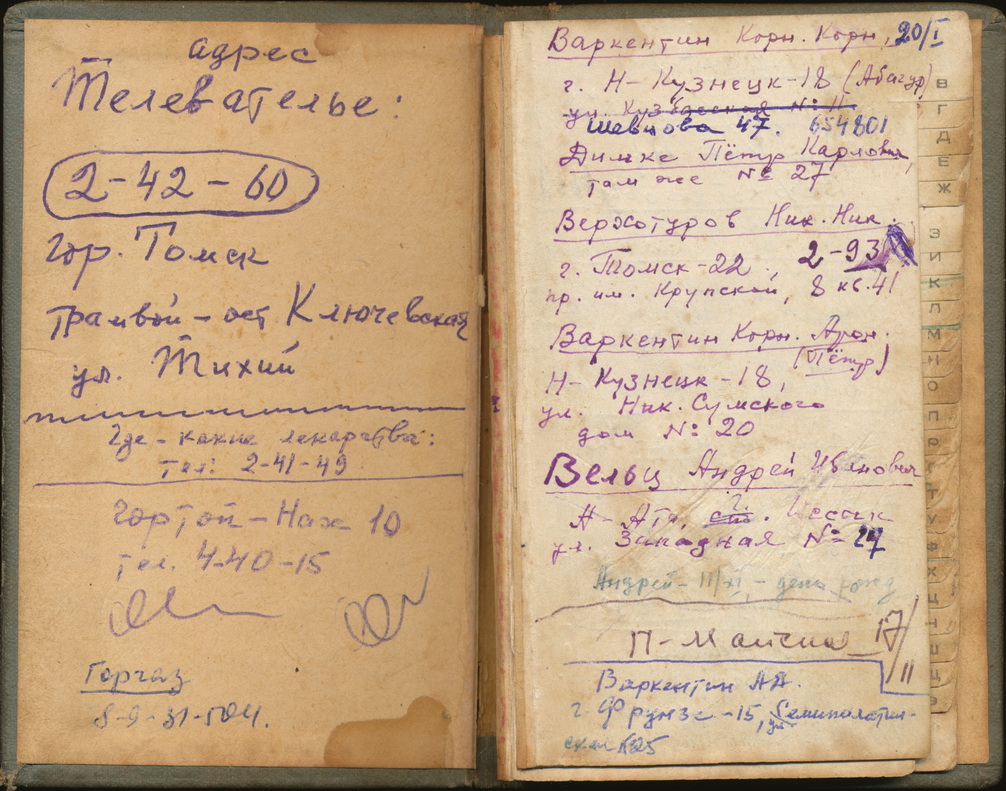 адрес
Телевателье:
2-42-60
гор. Томск
трамвой - ост Ключевская
ул. Тихий
Где - какие лекарства:
тел: 2-41-49
Гортоп - Нах 10
тел. 4-40-15
Горгаз
8-9-31-104.
Варкентин Корн. Корн. 20/I
г. Н-Кузнецк-18 (Абагур)
ул. Кузбасская № 11
Шевцова 47. 654801
Димке Пётр Карлович,
там же № 27
Верхотуров Ник. Ник.
г. Томск-22, 2-93
пр. им. Крупской, 8 кв. 41
Варкентин Корн. Арон.
(Пётр)
Н-Кузнецк-18,
ул. Ник. Сумского
дом № 20
Вельц Андрей Иванович
А-Ата, г. Иссык
ул. Западная № 27
Андрей - 11/XI - день рожд
17/11
Варкентин АА.
г. Фрунзе-15, ул. Семипалатин-
ская 25
В
Г
Д
Е
Ж
З
И
К
Л
М
Н
О
П
Р
Т
У
Ф
Х
Ц